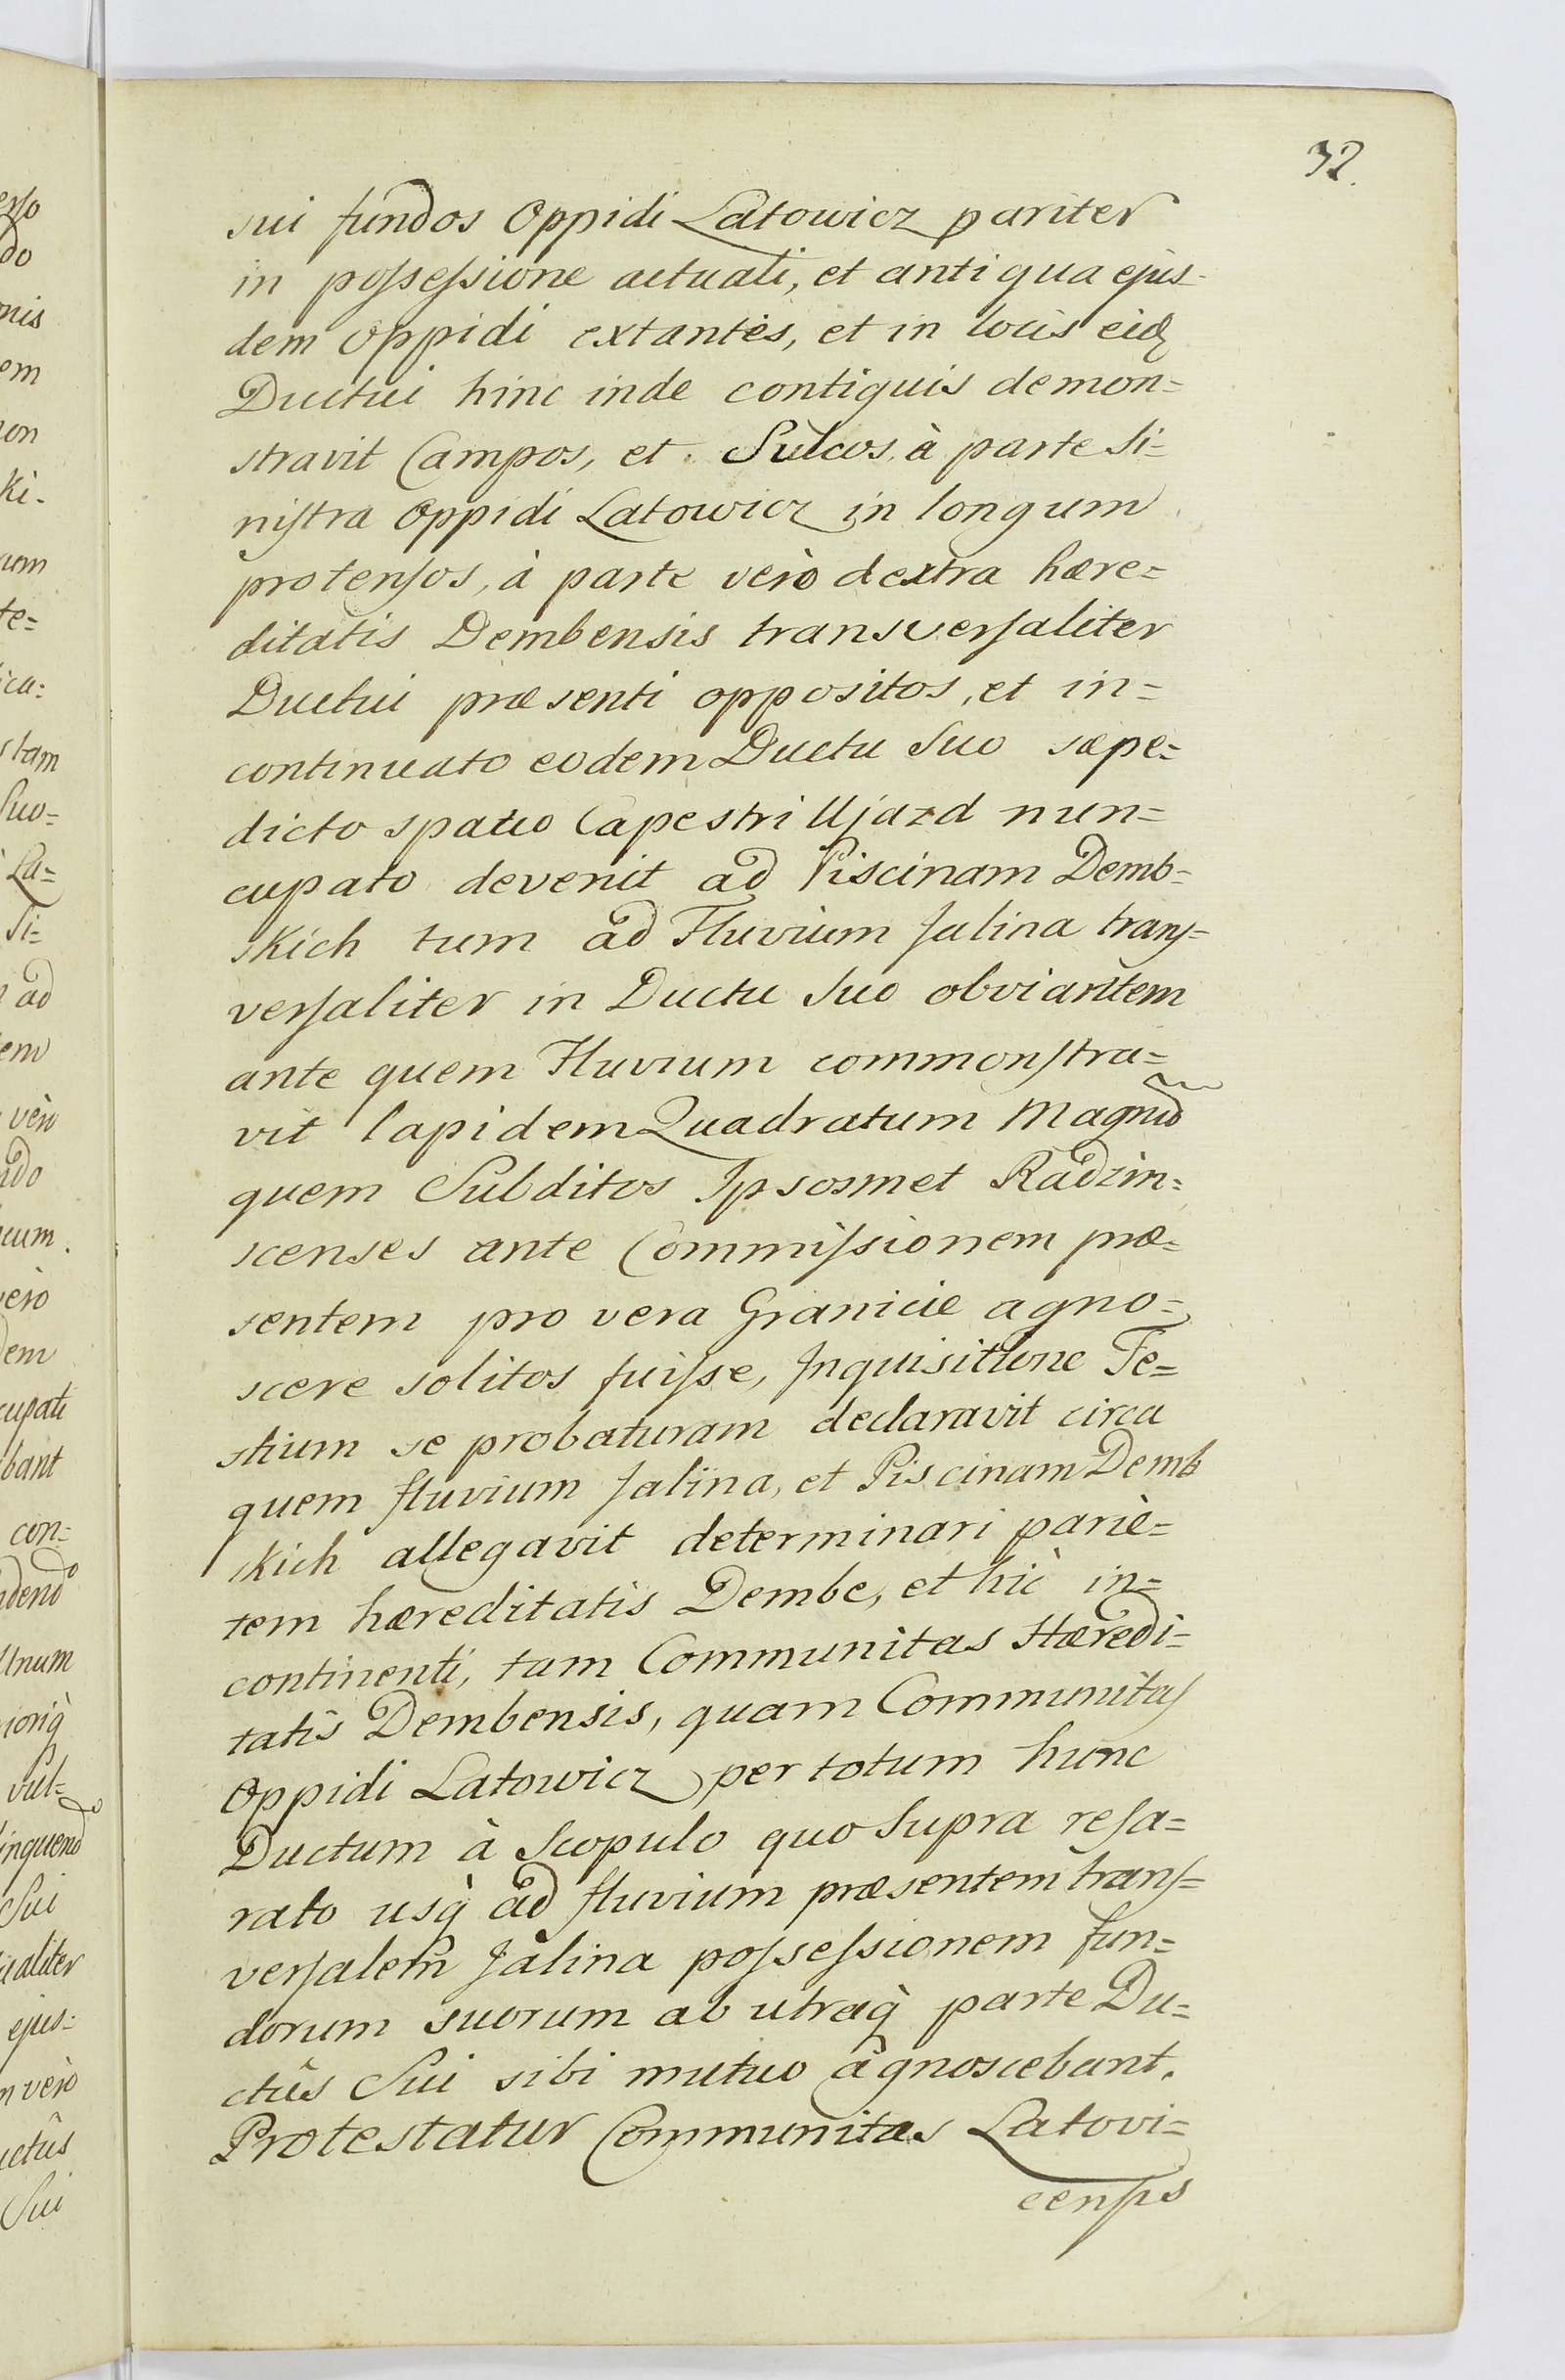 32.
sui fundos Oppidi Latowicz pariter
in possessione actuali, et antiqua ejus-
dem Oppidi extantes, et in locis eidꝫ
Ductui hinc inde contiguis demon=
stravit Campos, et Sulcos, à parte si=
nistra Oppidi Latowicz in longum
protensos, à parte verò dextra hære=
ditatis Dembensis transversaliter
Ductui præsenti oppositos, et in=
continuato eodem Ductu suo sæpe=
dicto spatio Capestri Ujazd nun=
cupato devenit ad Piscinam Demb=
skich tum ad Fluvium Jalina trans=
versaliter in Ductu suo obviantem
ante quem Fluvium commonstra=
vit lapidem Quadratum Magnũ
quem Subditos Ipsosmet Radzin=
scenses ante Commissionem præ=
sentem pro vera Granicie agno=
scere solitos fuisse, Inquisitione Te=
stium se probaturam declaravit circa
quem fluvium Jalina, et Piscinam Demb
skich allegavit determinari pariè=
tem hæreditatis Dembe, et hìc in=
continenti, tam Communitas Hæredi=
tatis Dembensis, quam Communitas
Oppidi Latowicz per totum hunc
Ductum à Scopulo quo supra resa=
rato usq̀ ad fluvium præsentem trans=
versalem Jalina possessionem fun=
dorum suorum ab utraq̀ parte Du=
ctûs Sui sibi mutuo agnoscebant.
Protestatur Communitas Latovi=
censis